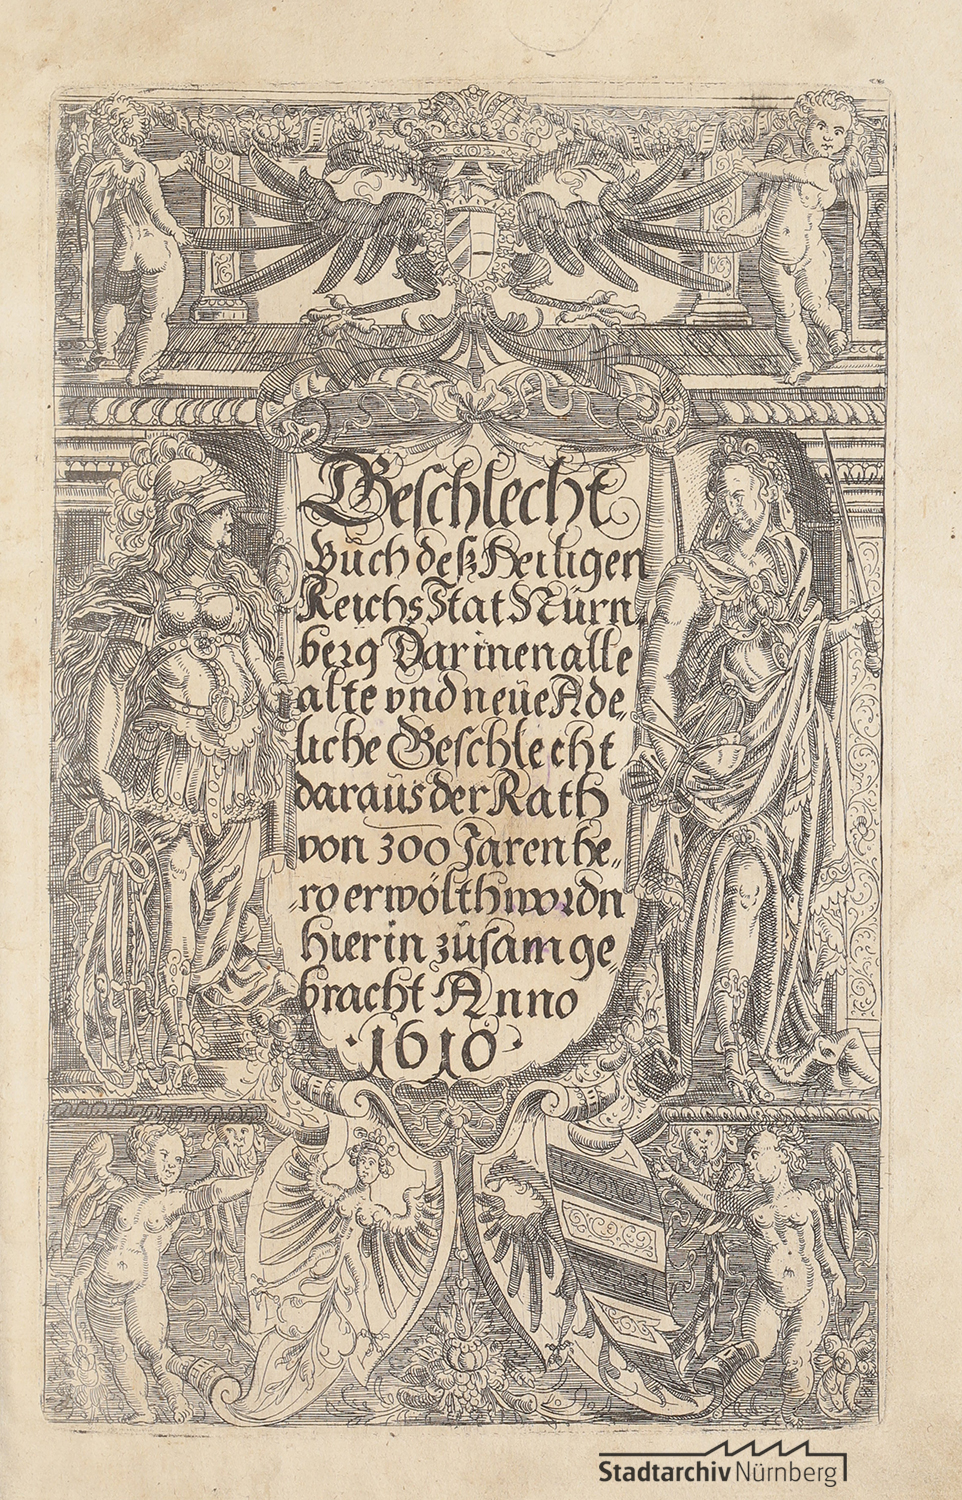 Geschlecht
Buch deß Heiligen
Reichs Stat Nürn
berg Darinen alle
alte vnd neüe Ade„
liche Geschlecht
daraüs der Rath
von 300 Jaren he„
„ro erwölth wordn
hierin züsam ge„
bracht Anno
·1610·
Stadtarchiv Nürnberg